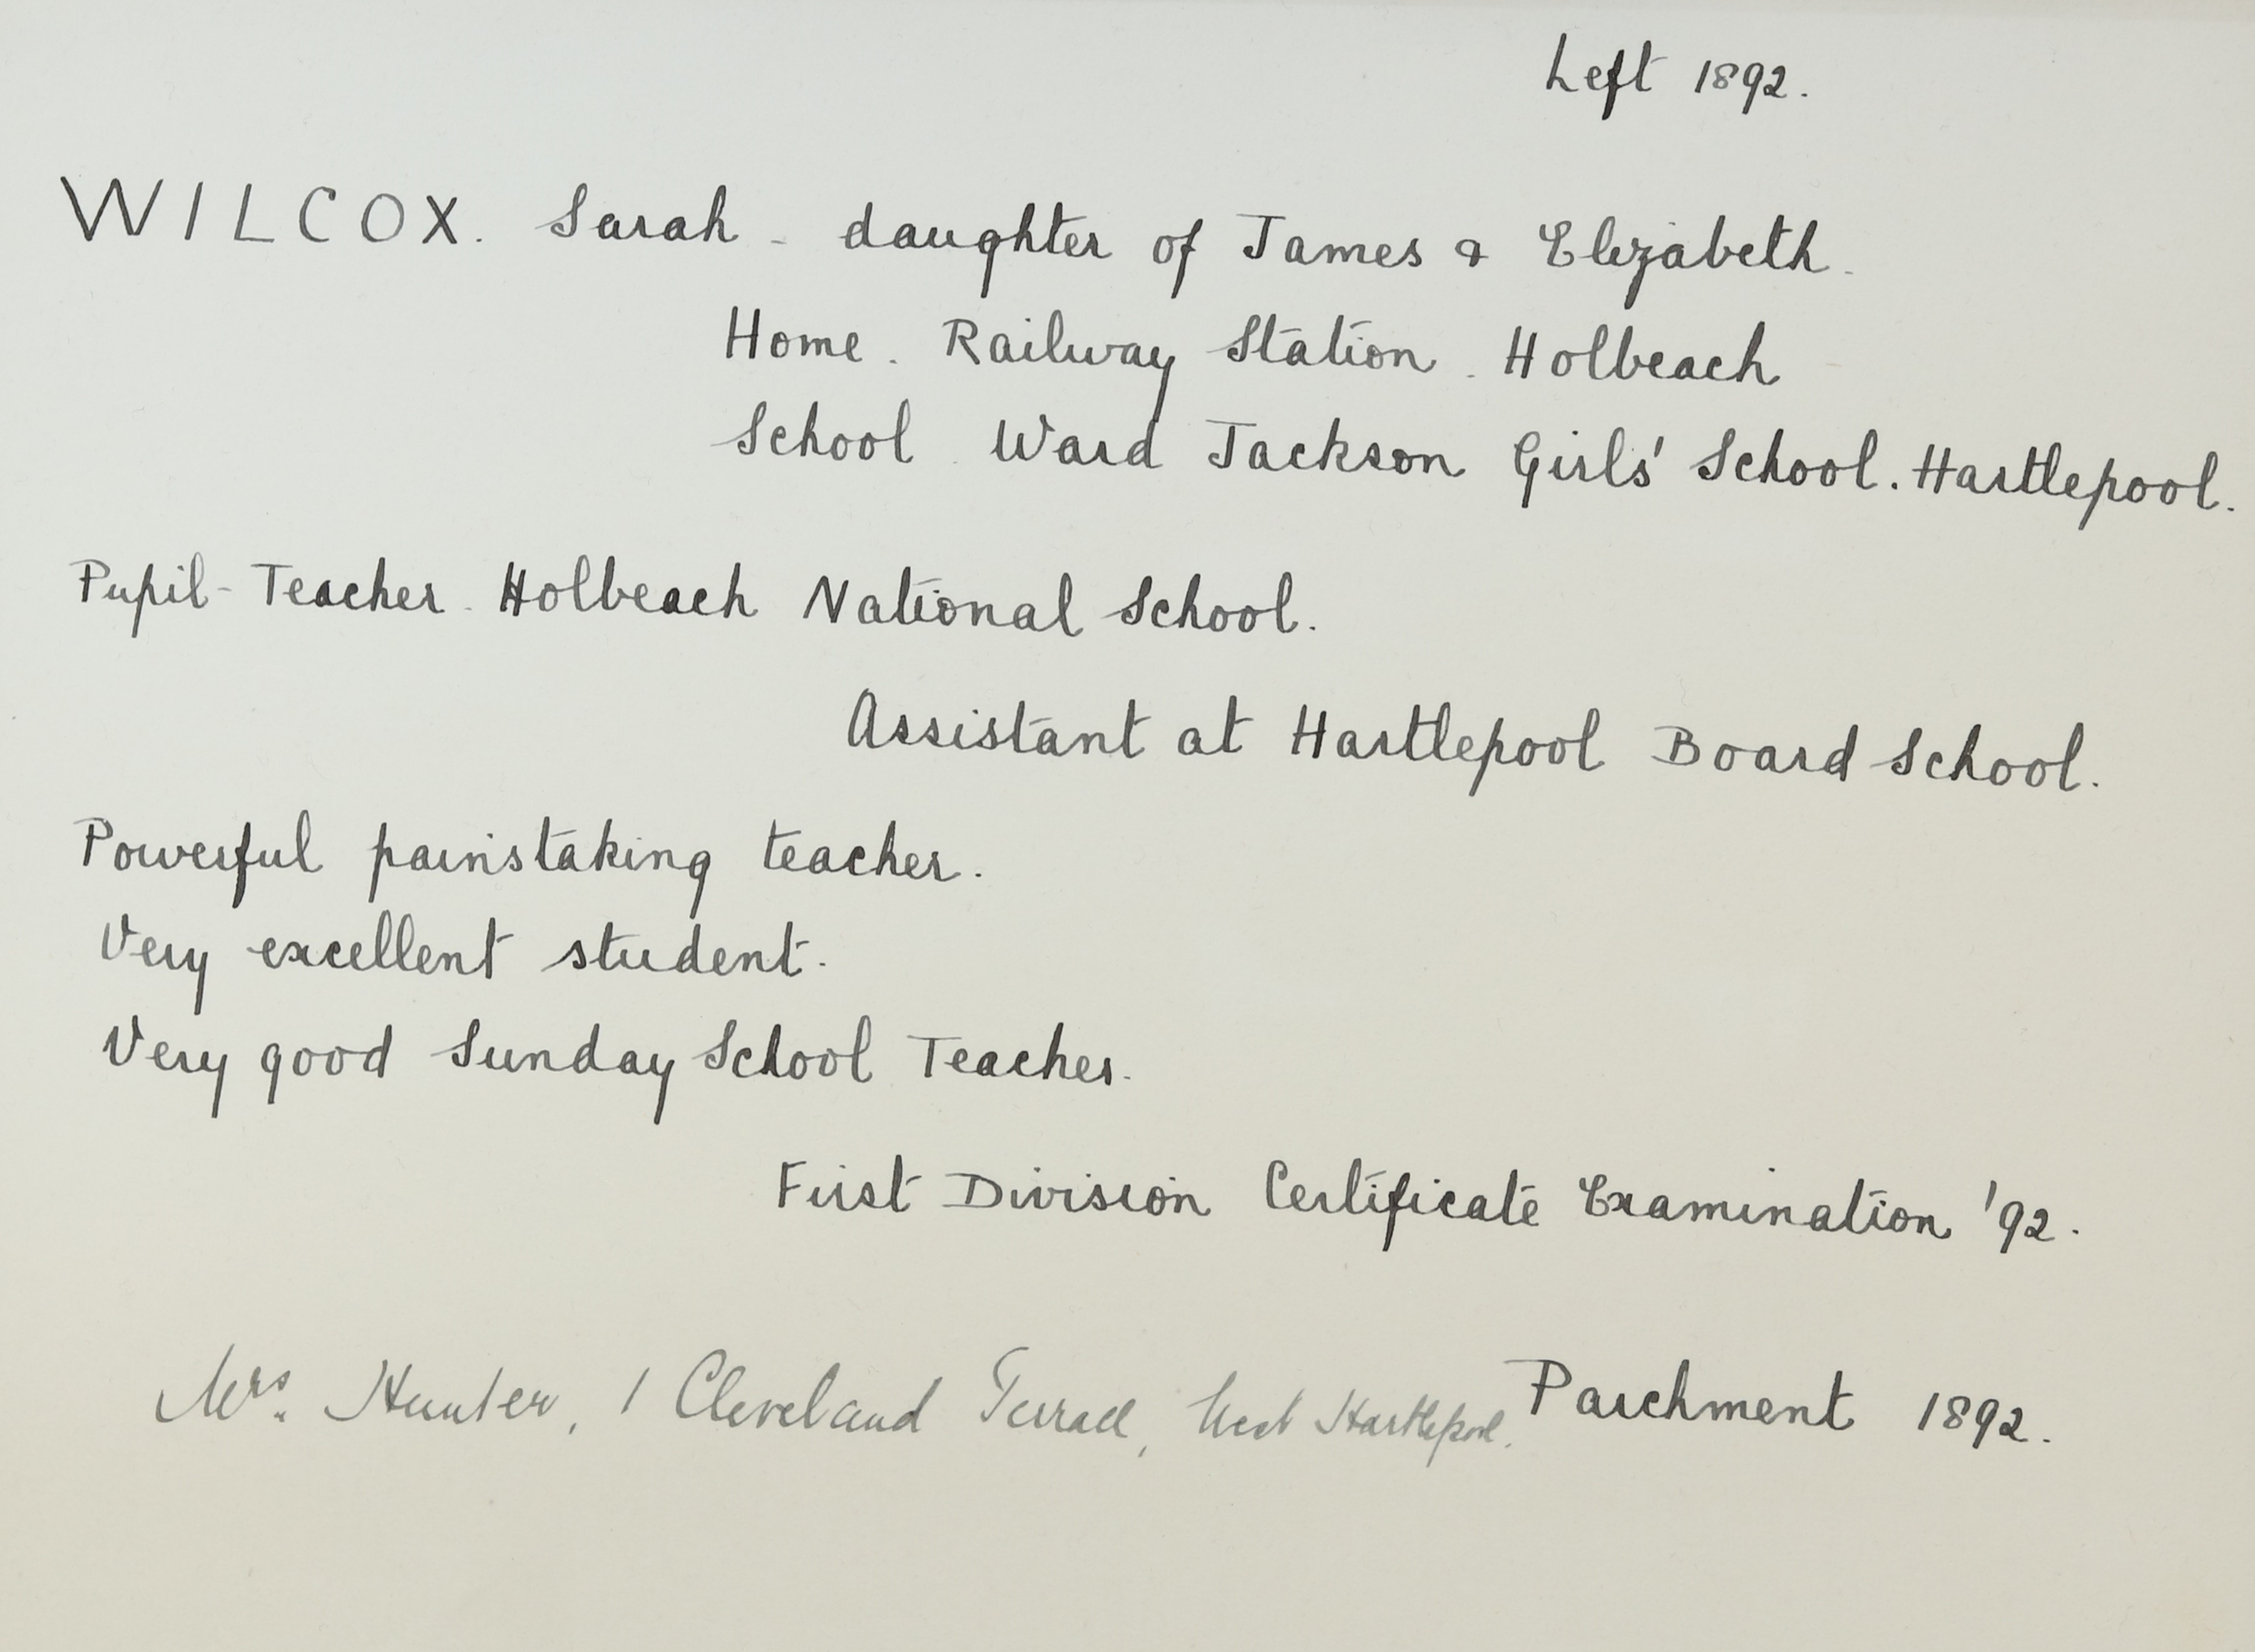 Left 1892.
WILCOX. Sarah - daughter of James & Elizabeth.
Home. Railway Station. Holbeach
School. Ward Jackson Girls' School. Hartlepool.
Pupil-Teacher. Holbeach National School.
Assistant at Hartlepool Board School.
Powerful painstaking teacher.
Very excellent student.
Very good Sunday School Teacher.
First Division Certificate Examination '92.
Mrs. Hunter, 1 Cleveland Terrace, West Hartlepool. Parchment 1892.